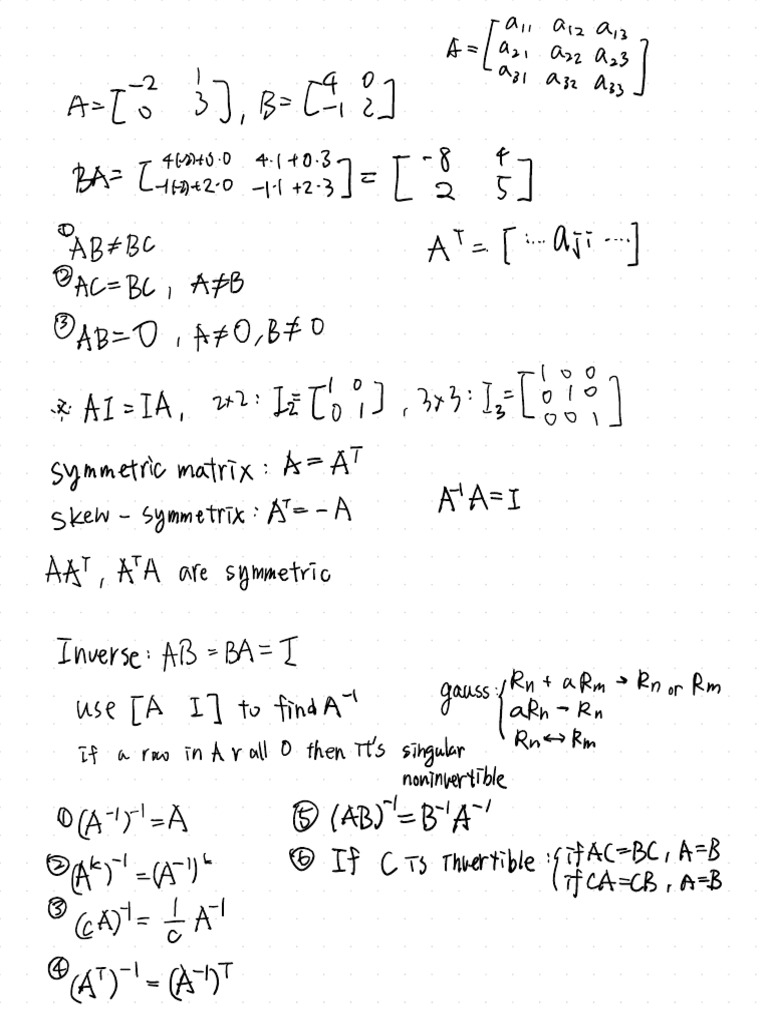 A = [a11 a12 a13
a21 a22 a23
a31 a32 a33]
A = [-2 1
0 3], B = [4 0
-1 2]
BA = [4(-2)+0·0 4·1+0·3
-1(-2)+2·0 -1·1+2·3] = [-8 4
2 5]
① AB≠BC
Aᵀ = [⋯ aji ⋯]
② AC=BC, A≠B
③ AB=O, A≠O, B≠O
※ AI=IA, 2×2: I2=[1 0
0 1], 3×3: I3=[1 0 0
0 1 0
0 0 1]
symmetric matrix: A=Aᵀ
skew-symmetrix: Aᵀ=-A
A⁻¹A=I
AAᵀ, AᵀA are symmetric
Inverse: AB=BA=I
use [A I] to find A⁻¹
gauss: { Rn + aRm → Rn or Rm
aRn → Rn
Rn ↔ Rm
if a row in A r all 0 then it's singular
noninvertible
① (A⁻¹)⁻¹=A
② (Aᵏ)⁻¹=(A⁻¹)ᵏ
③ (cA)⁻¹=1/c A⁻¹
④ (Aᵀ)⁻¹=(A⁻¹)ᵀ
⑤ (AB)⁻¹=B⁻¹A⁻¹
⑥ If C is invertible: { if AC=BC, A=B
if CA=CB, A=B